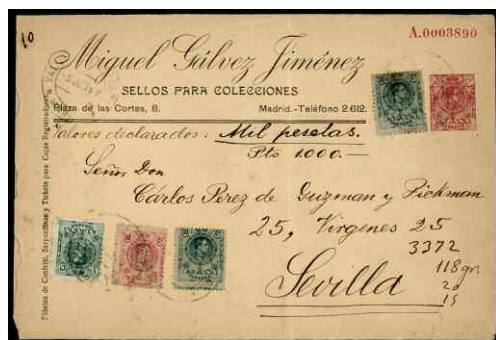 A.0003890
10
Miguel Gálvez Jiménez
SELLOS PARA COLECCIONES
Plaza de las Cortes, 8. Madrid.-Teléfono 2.612.
Valores declarados: Mil pesetas.
Pts 1.000.—
Señor Don
Cárlos Pérez de Guzman y Pickman
25, Virgenes 25
3372
118 gr.
20
15
Sevilla
Fábrica de Confetti, Serpentinas y Tickets para Cajas Registradoras